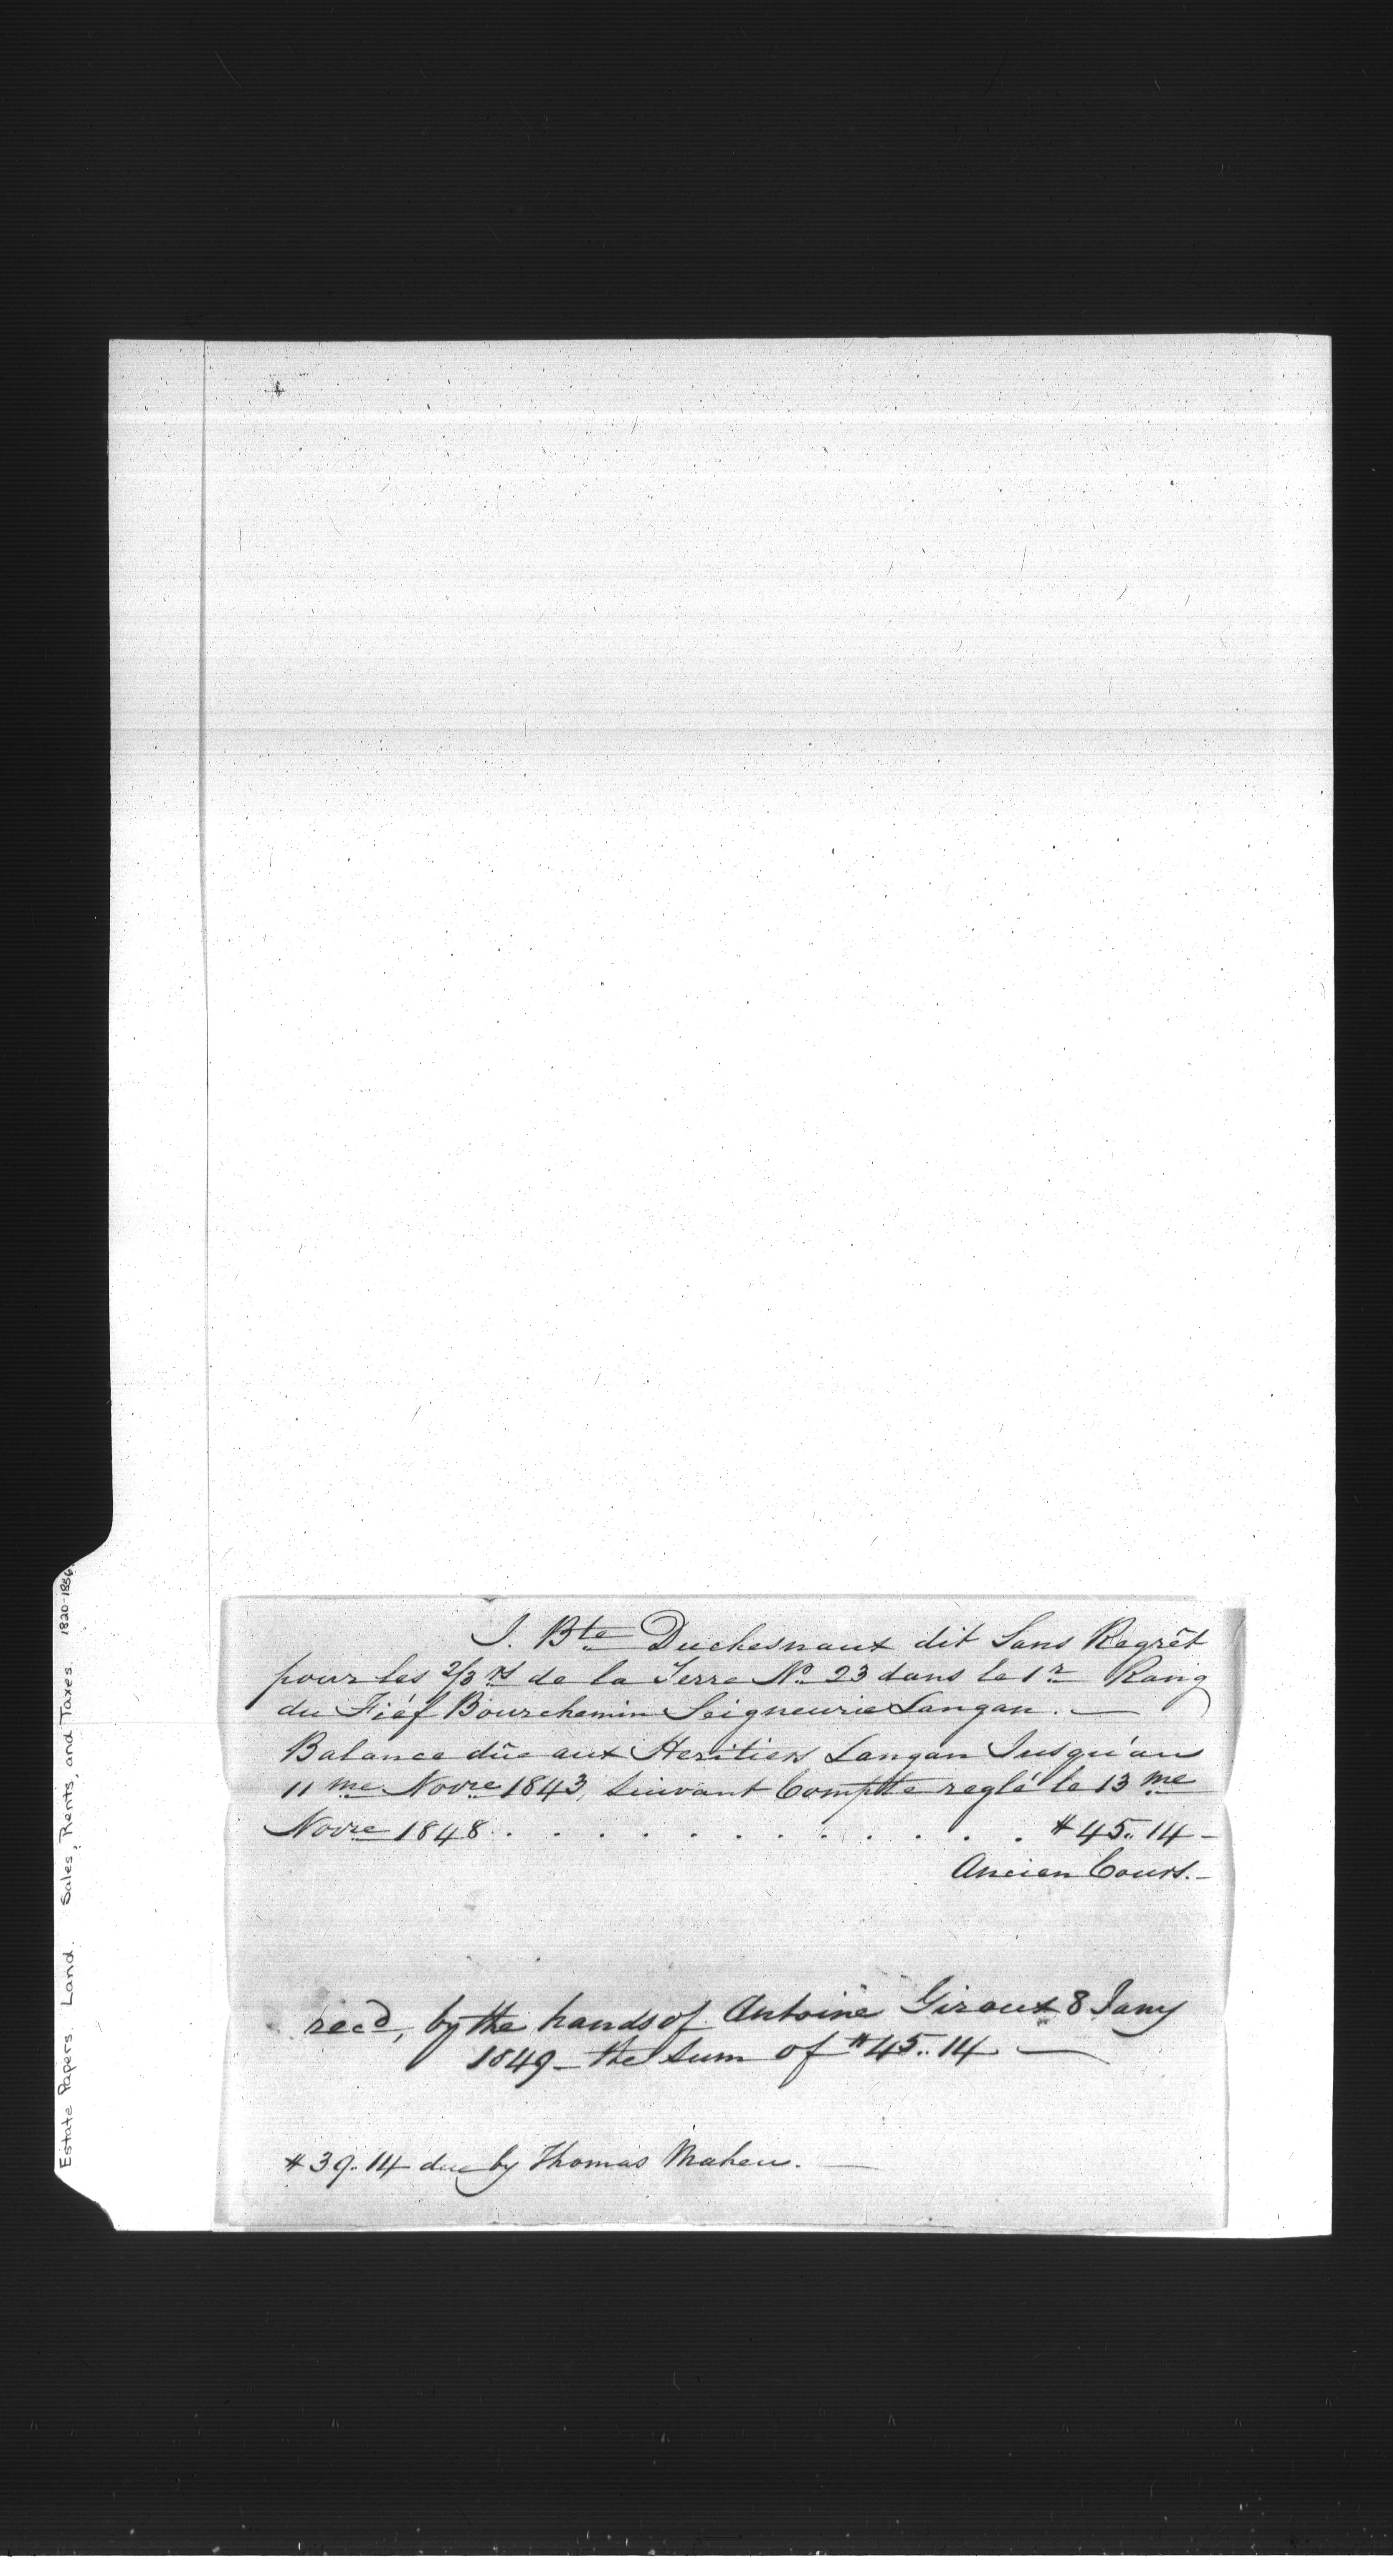 J. Bte Duchesnaux dit Sans Regrêt
pour les 2/3rs de la Terre No. 23 dans le 1r Rang
du Fiéf Bourchemin Seigneurie Langan. —
Balance dûe aux Heritiers Langan Jusqu'au
11me Novre 1843, suivant Comptte reglé le 13me
Novre 1848 . . . . . . . . . . . . # 45.. 14 –
Ancien Cours. –
recd, by the hands of Antoine Giroux 8 Jany
1849 – the sum of # 45.. 14 —
# 39.. 14 due by Thomas Maheu. —
Estate Papers. Land. Sales, Rents, and Taxes 1820-1856